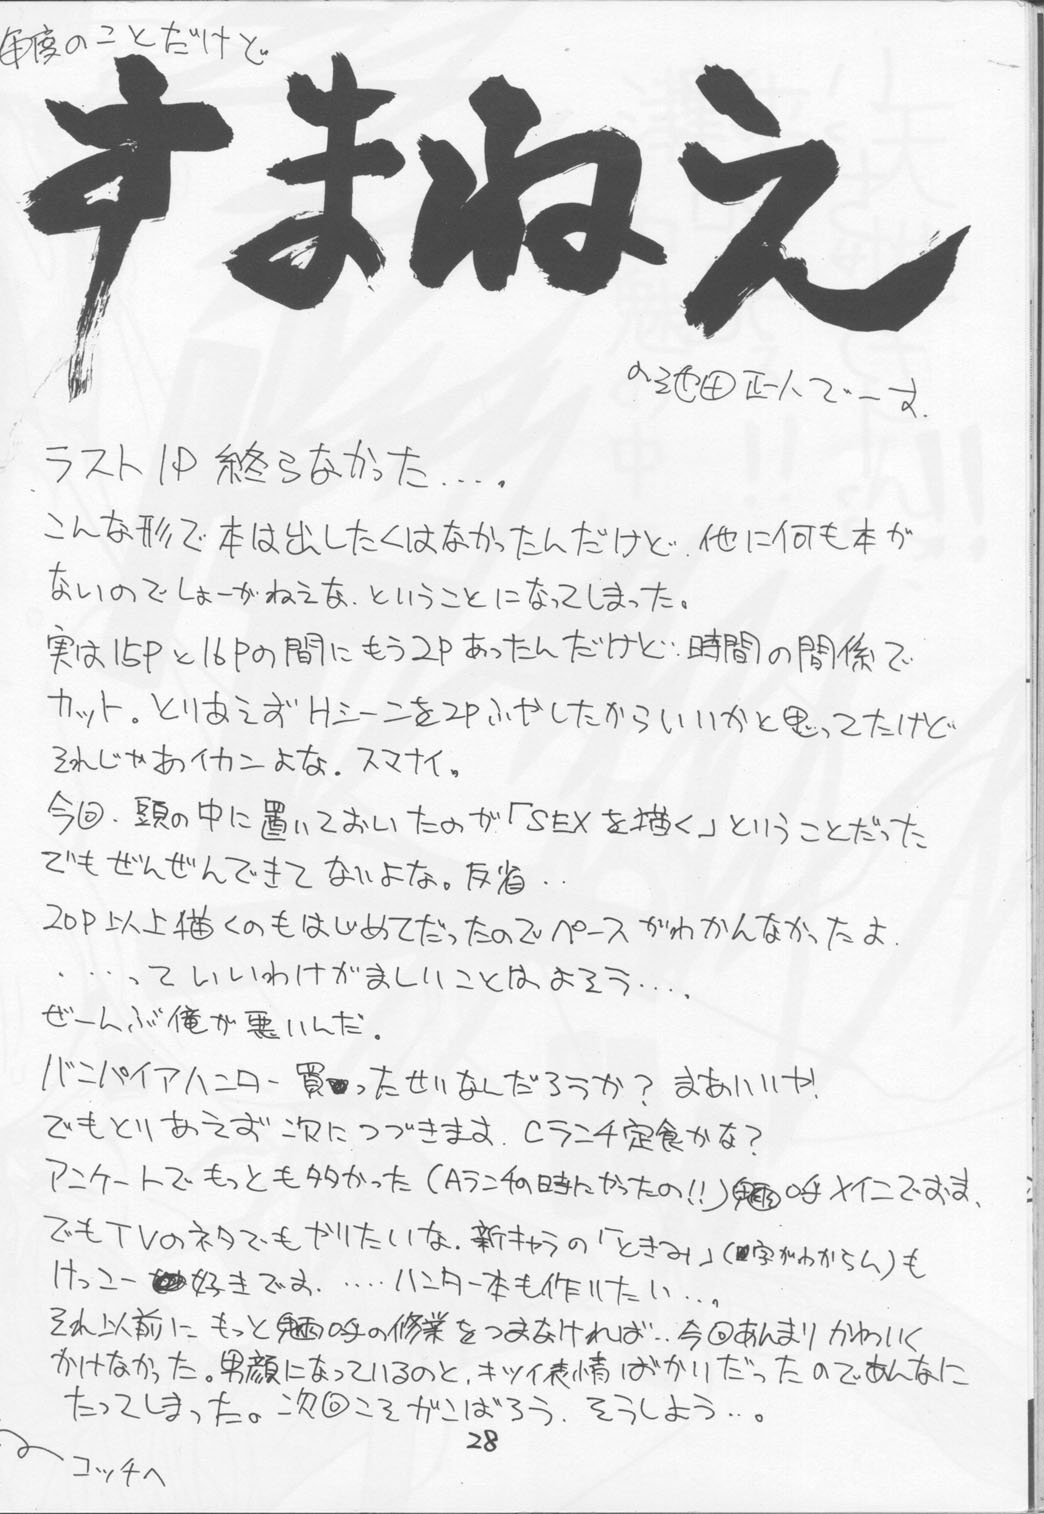 毎度のことだけど
すまねえ
の池田正人でーす.
ラスト1P 終らなかった.....
こんな形で本は出したくはなかったんだけど.他に何も本が
ないのでしょーがねえな.ということになってしまった。
実は15Pと16Pの間にもう2Pあったんだけど..時間の関係で
カット。とりあえずHシーンを2Pふやしたからいいかと思ってたけど
それじゃあイカンよな.スマナイ。
今回.頭の中に置いておいたのが「SEXを描く」ということだった
でもぜんぜんできてないよな。反省..
20P以上描くのもはじめてだったのでペースがわかんなかったよ.
....っていいわけがましいことはよそう....
ぜーんぶ俺が悪いんだ.
バンパイアハンター買ったせいなんだろうか?まあいいや!
でもとりあえず次につづきます.Cランチ定食かな?
アンケートでもっとも多かった(Aランチの時にかったの!!)魎呼メインでおま.
でもTVのネタでもやりたいな.新キャラの「ときみ」(字がわからん)も
けっこー好きです.....ハンター本も作りたい...
それ以前にもっと魎呼の修業をつまなければ..今回あんまりかわいく
かけなかった。男顔になっているのと.キツイ表情ばかりだったのであんなに
たってしまった。次回こそがんばろう.そうしよう...
28
コッチへ